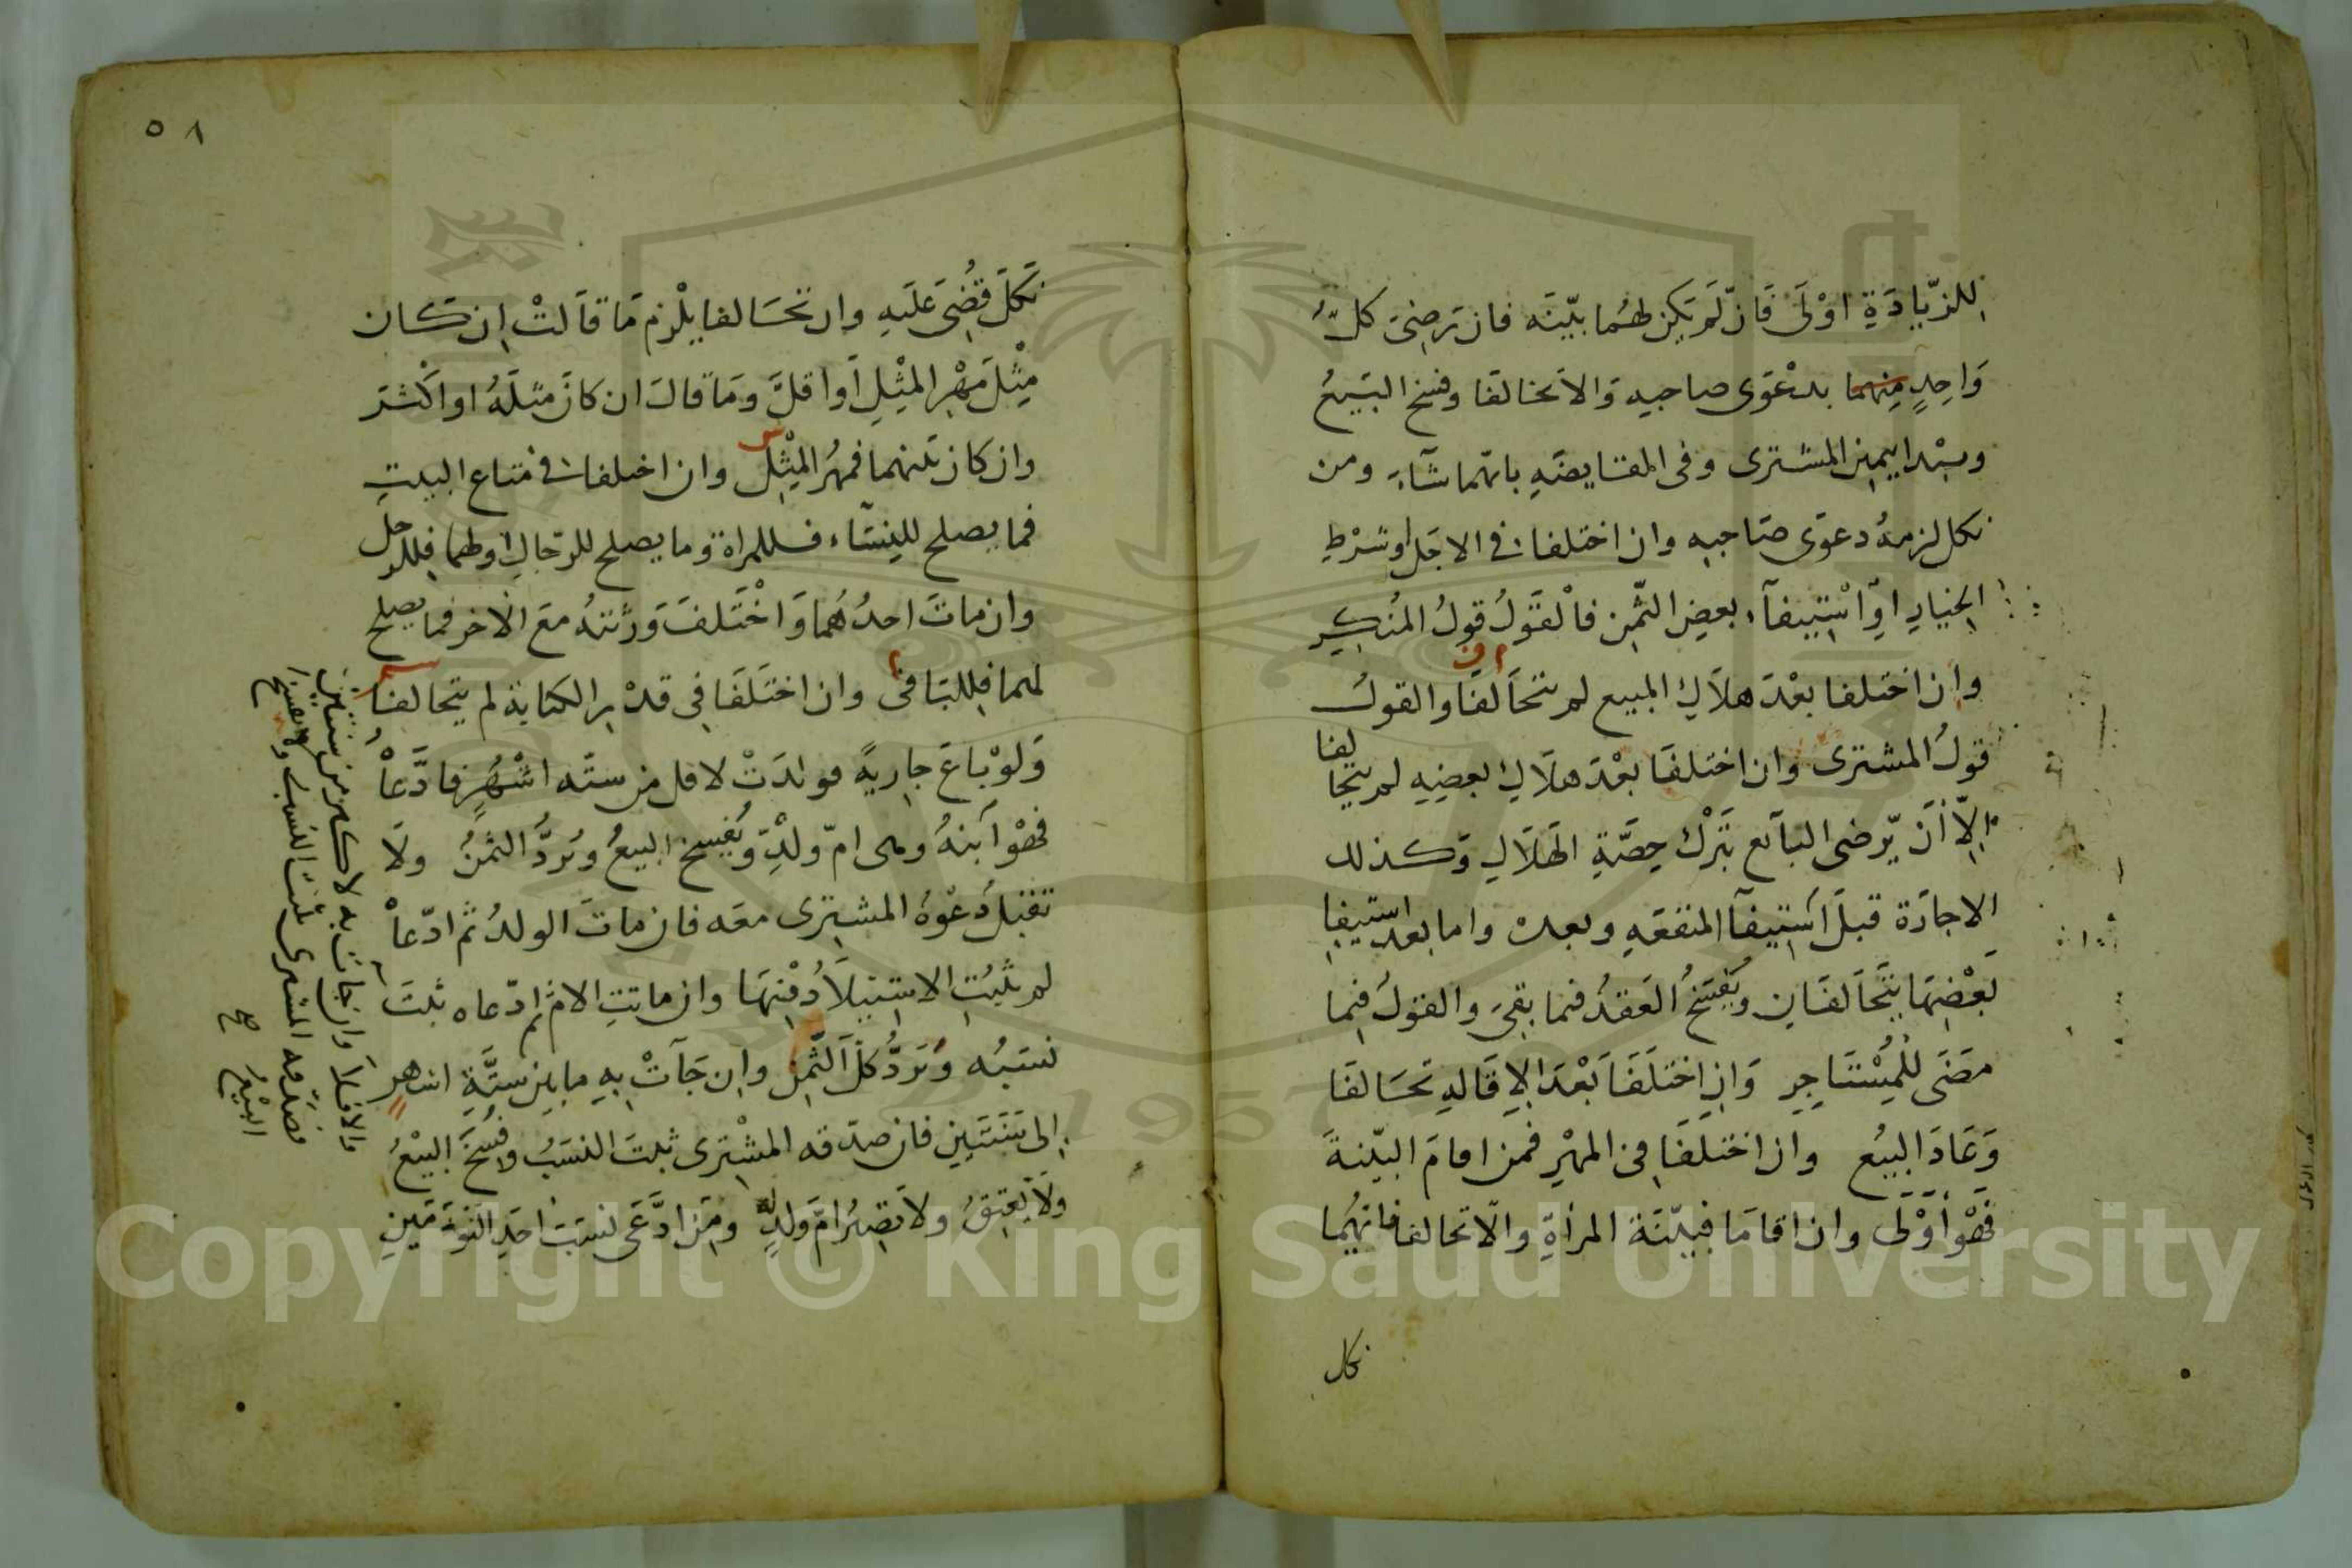 لِلزِّيَادَةِ اَوْلَى فَاِنْ لَمْ يَكُنْ لهُما بيّنَه فان رَضِىَ كلُّ
وَاحِدٍ مِنهما بدعْوَى صاحبِه وَالا تحالفَا وفسخ البَيعُ
ويبْدا بيمين المشترى وفى المقايضَةِ بايّهما شآءَ ومن
نكل لزمهُ دعوَى صَاحبِه وان اختلفا فى الاجَل اوشرْطِ
الخيارِ اَوِ اسْتيفآء بعضِ الثّمنِ فالْقَوْلُ قولُ المُنْكِرِ
وان اختلفا بعْدَ هلاَكِ المبيع لم يتحَالفَا والقولُ
قولُ المشترى وان اختلفَا بعْدَ هلاَكِ بعضِهِ لم يتحالفا
اِلاّ أَنْ يّرضى البآئع بتَرْكِ حِصَّةِ الهَلاَكِ وَكذلك
الاجارَة قبلَ اسْتيفآ المنفعَهِ وبعدهَ واما بعد استيفا
بَعْضِهَا يتَحَالفَانِ ويُفْسَخُ العَقدُ فيما بقِىَ والقوْلُ فِيما
مضَى لِلْمُسْتَاجِرِ وَانِ اختَلَفَا بَعْدَ الاِقَالهِ تحَالفَا
وَعَادَ البيْع وان اختلَفَا فى المهْرِ فمَن اقامَ البيّنةَ
فَهْوَ أوْلَى وان اقامَا فبيّنَة المرأةِ والّا تحالفا فايّهُما
نكل
٥٨
نَكَلَ قُضِىَ عَليَهِ وان تحَالفا يلْزم مَا قَالتْ اِن كان
مِثْلَ مَهْرِ المِثْلِ اَو اقلَّ وَمَا قالَ ان كانَ مثلَهُ او اكْثرَ
وان كان بَيْنهما فمهْرُ المِثِلْ وان اختلفا فى مَتاع البيتِ
فما يصلح للنِسَآء فللمراة وما يصلح للرّجالِ اولهما فللرجل
وان ماتَ احدُهُما وَاخْتَلفَ وَرَثتهُ معَ الآخر فما يصلح
لهما فللباقى وان اختَلَفَا فِى قدْرِ الكتابة لم يتحالفا
وَلوْ باعَ جاريةً فولدَتْ لاقل من ستّه اشْهُرٍ فادَّعاهُ
فهْوَ ابنهُ وهى امّ ولدِه ويُفْسخ البيعُ ويُردُّ الثمَنُ ولَا
تقبلُ دَعْوةُ المشترى معَه فان ماتَ الولدُ ثم ادّعاهُ
لم يثبُتِ الاسْتيلاَدُ فيهَا وان ماتتِ الام ثم ادّعاه ثبتَ
نسَبُه وَيَردُّ كلَّ الثّمنِ واِن جَآتْ بهِ ما بين ستَّةِ اشهر
اِلى سَنَتَينِ فان صدّقه المشْترى ثبتَ النسَبُ وفُسِخَ البيْعُ
ولَا يَعْتِقُ ولا تصِيرُ امَّ ولدٍ وَمَن ادَّعَى نسَبَ احَدِ التوْءَمَينِ
والا فلا وان جات به لاكثر من سنتين
فصدّقه المشترى ثبت النسب ولا يفسخ
البيعُ صح